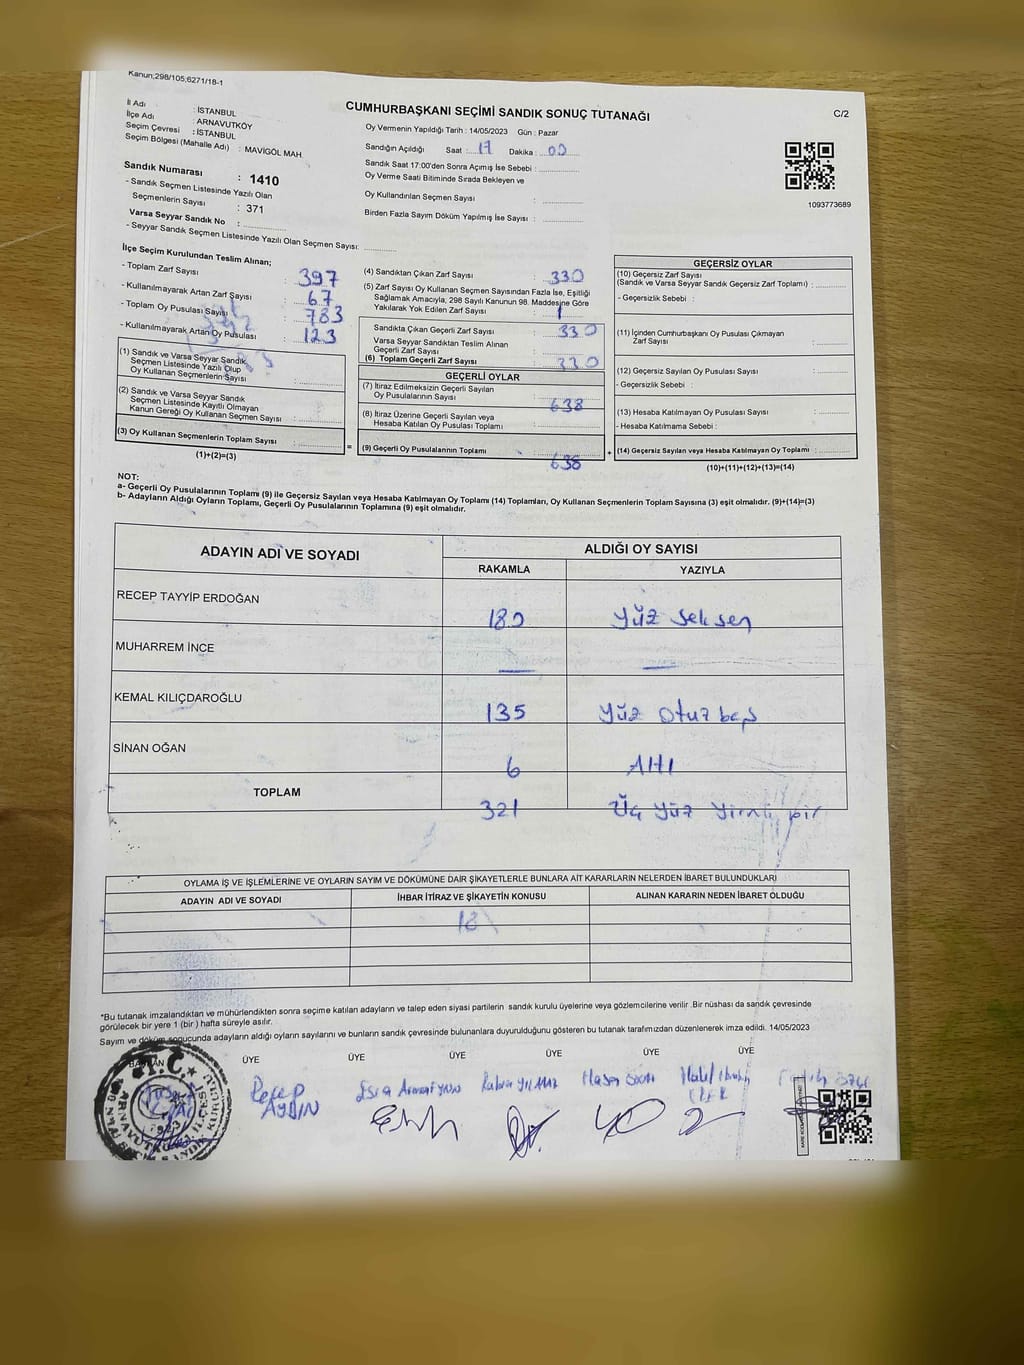 Kanun;298/105;6271/18-1
CUMHURBAŞKANI SEÇİMİ SANDIK SONUÇ TUTANAĞI
C/2
İl Adı : İSTANBUL
İlçe Adı : ARNAVUTKÖY
Seçim Çevresi : İSTANBUL
Seçim Bölgesi (Mahalle Adı) : MAVİGÖL MAH
Sandık Numarası : 1410
- Sandık Seçmen Listesinde Yazılı Olan
Seçmenlerin Sayısı : 371
Varsa Seyyar Sandık No :
- Seyyar Sandık Seçmen Listesinde Yazılı Olan Seçmen Sayısı:
Oy Vermenin Yapıldığı Tarih : 14/05/2023 Gün : Pazar
Sandığın Açıldığı Saat : 17 Dakika : 00
Sandık Saat 17:00'den Sonra Açımış İse Sebebi :
Oy Verme Saati Bitiminde Sırada Bekleyen ve
Oy Kullandırılan Seçmen Sayısı :
Birden Fazla Sayım Döküm Yapılmış İse Sayısı :
1093773689
İlçe Seçim Kurulundan Teslim Alınan;
- Toplam Zarf Sayısı : 397
- Kullanılmayarak Artan Zarf Sayısı : 67
- Toplam Oy Pusulası Sayısı : 783
- Kullanılmayarak Artan Oy Pusulası : 123
(1) Sandık ve Varsa Seyyar Sandık
Seçmen Listesinde Yazılı Olup
Oy Kullanan Seçmenlerin Sayısı :
(2) Sandık ve Varsa Seyyar Sandık
Seçmen Listesinde Kayıtlı Olmayan
Kanun Gereği Oy Kullanan Seçmen Sayısı :
(3) Oy Kullanan Seçmenlerin Toplam Sayısı :
(1)+(2)=(3)
(4) Sandıktan Çıkan Zarf Sayısı : 330
(5) Zarf Sayısı Oy Kullanan Seçmen Sayısından Fazla İse, Eşitliği
Sağlamak Amacıyla, 298 Sayılı Kanunun 98. Maddesine Göre
Yakılarak Yok Edilen Zarf Sayısı :
Sandıkta Çıkan Geçerli Zarf Sayısı : 330
Varsa Seyyar Sandıktan Teslim Alınan
Geçerli Zarf Sayısı :
(6) Toplam Geçerli Zarf Sayısı : 330
GEÇERLİ OYLAR
(7) İtiraz Edilmeksizin Geçerli Sayılan
Oy Pusulalarının Sayısı : 638
(8) İtiraz Üzerine Geçerli Sayılan veya
Hesaba Katılan Oy Pusulası Toplamı :
= (9) Geçerli Oy Pusulalarının Toplamı : 638 +
GEÇERSİZ OYLAR
(10) Geçersiz Zarf Sayısı
(Sandık ve Varsa Seyyar Sandık Geçersiz Zarf Toplamı) :
- Geçersizlik Sebebi :
(11) İçinden Cumhurbaşkanı Oy Pusulası Çıkmayan
Zarf Sayısı :
(12) Geçersiz Sayılan Oy Pusulası Sayısı :
- Geçersizlik Sebebi :
(13) Hesaba Katılmayan Oy Pusulası Sayısı :
- Hesaba Katılmama Sebebi :
(14) Geçersiz Sayılan veya Hesaba Katılmayan Oy Toplamı :
(10)+(11)+(12)+(13)=(14)
NOT:
a- Geçerli Oy Pusulalarının Toplamı (9) ile Geçersiz Sayılan veya Hesaba Katılmayan Oy Toplamı (14) Toplamları, Oy Kullanan Seçmenlerin Toplam Sayısına (3) eşit olmalıdır. (9)+(14)=(3)
b- Adayların Aldığı Oyların Toplamı, Geçerli Oy Pusulalarının Toplamına (9) eşit olmalıdır.
ADAYIN ADI VE SOYADI ALDIĞI OY SAYISI
RAKAMLA YAZIYLA
RECEP TAYYİP ERDOĞAN 180 Yüz Seksen
MUHARREM İNCE — —
KEMAL KILIÇDAROĞLU 135 Yüz Otuz beş
SİNAN OĞAN 6 Altı
TOPLAM 321 Üç Yüz Yirmi bir
OYLAMA İŞ VE İŞLEMLERİNE VE OYLARIN SAYIM VE DÖKÜMÜNE DAİR ŞİKAYETLERLE BUNLARA AİT KARARLARIN NELERDEN İBARET BULUNDUKLARI
ADAYIN ADI VE SOYADI İHBAR İTİRAZ VE ŞİKAYETİN KONUSU ALINAN KARARIN NEDEN İBARET OLDUĞU
18
*Bu tutanak imzalandıktan ve mühürlendikten sonra seçime katılan adayların ve talep eden siyasi partilerin sandık kurulu üyelerine veya gözlemcilerine verilir .Bir nüshası da sandık çevresinde
görülecek bir yere 1 (bir ) hafta süreyle asılır.
Sayım ve döküm sonucunda adayların aldığı oyların sayılarını ve bunların sandık çevresinde bulunanlara duyurulduğunu gösteren bu tutanak tarafımızdan düzenlenerek imza edildi. 14/05/2023
BAŞKAN ÜYE ÜYE ÜYE ÜYE ÜYE ÜYE
Recep AYDIN
Kübra YILMAZ
Halil İbrahim
T.C.